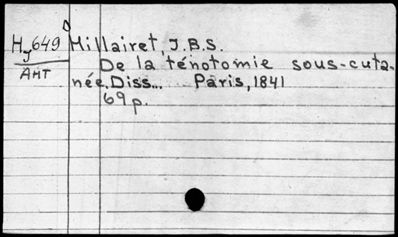 Hy649 Millairet, J.B.S.
AMT De la ténotomie sous-cuta-
née. Diss... Paris, 1841
69 p.